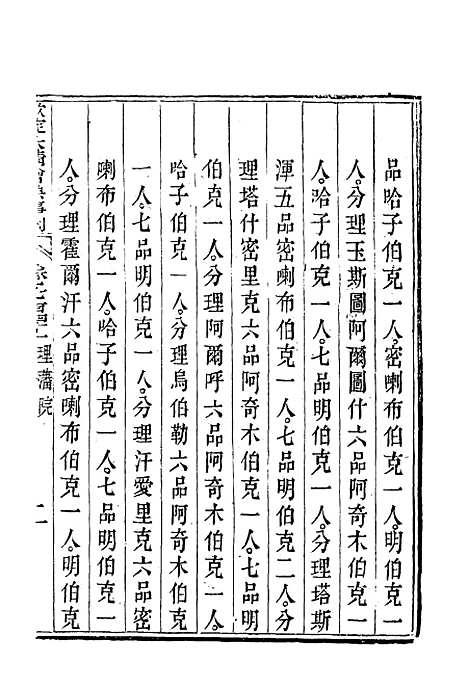 品哈子伯克一人。密喇布伯克一人。明伯克一
人。分理玉斯圖阿爾圖什六品阿奇木伯克一
人。哈子伯克一人。七品明伯克一人。分理塔斯
渾五品密喇布伯克一人。七品明伯克二人。分
理塔什密里克六品阿奇木伯克一人。七品明
伯克一人。分理阿爾呼六品阿奇木伯克一人。
哈子伯克一人。分理烏伯勒六品阿奇木伯克
一人。七品明伯克一人。分理汗愛里克六品密
喇布伯克一人。哈子伯克一人。七品明伯克一
人。分理霍爾汗六品密喇布伯克一人。明伯克
欽定大清會典事例 理藩院 二